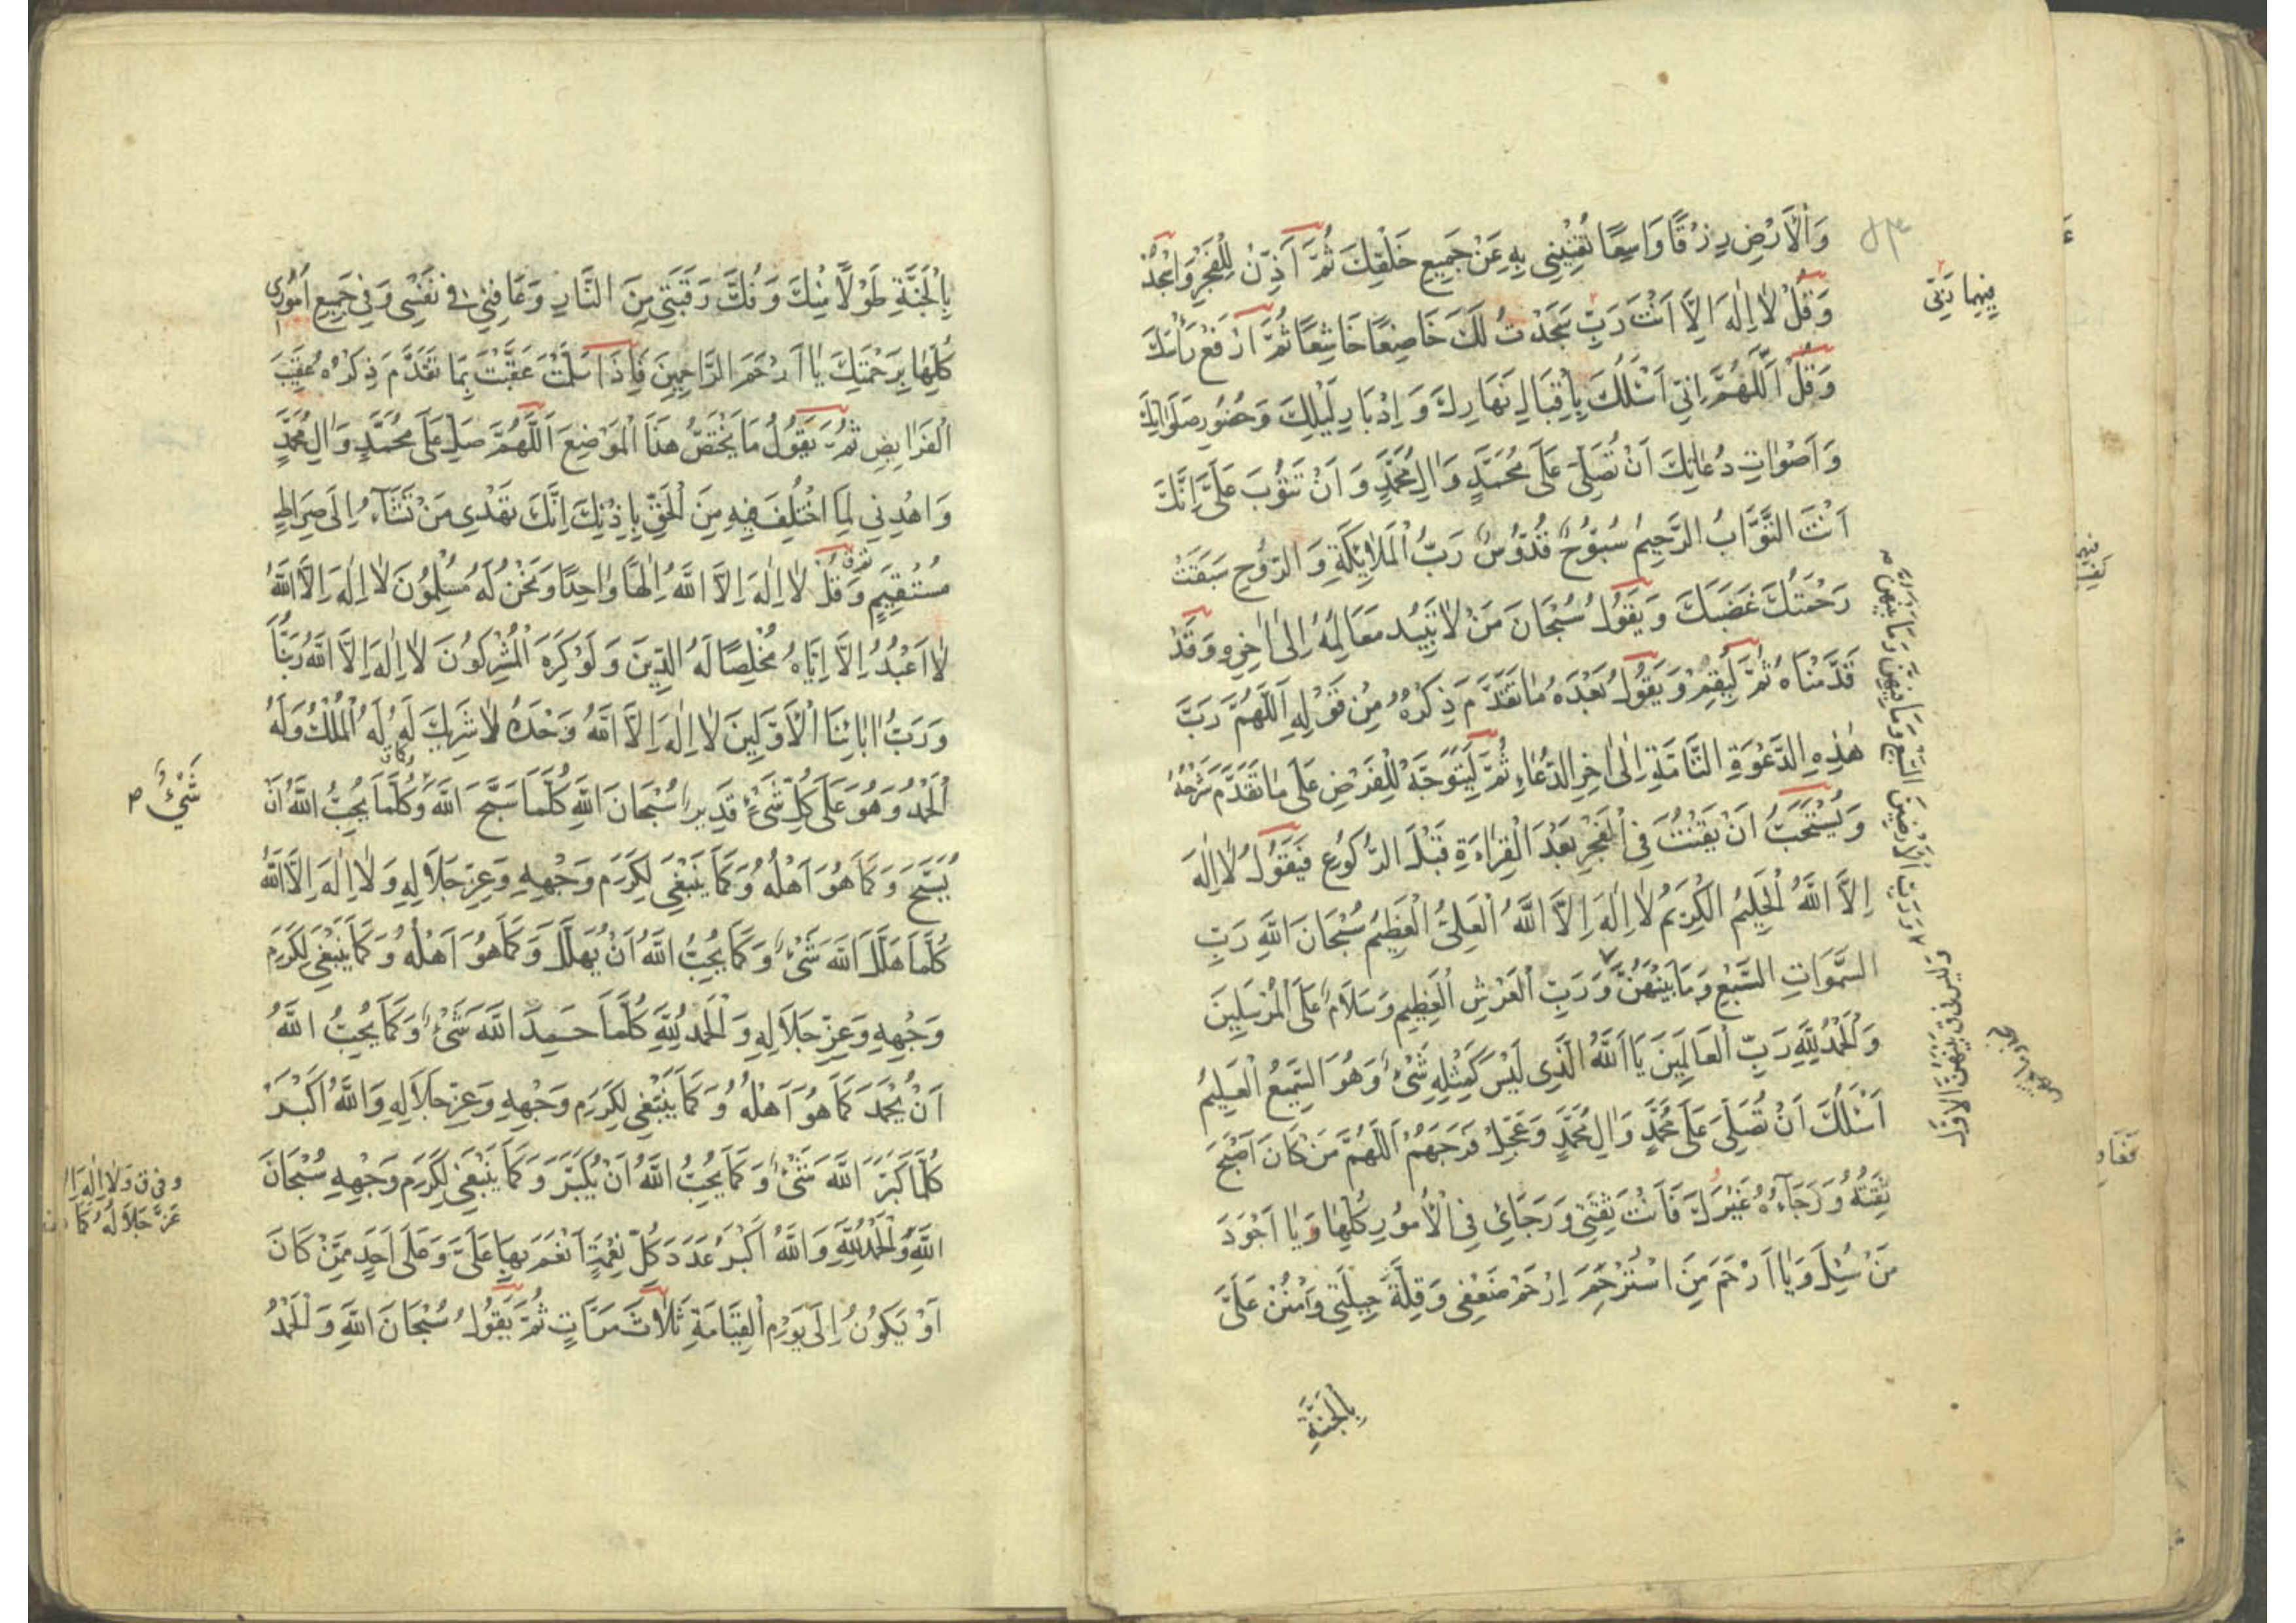 وَالْأَرْضِ رِزْقًا وَاسِعًا تُغْنِينِي بِهِ عَنْ جَمِيعِ خَلْقِكَ ثُمَّ أَذِّنْ لِلْفَجْرِ وَاسْجُدْ
وَقُلْ لَا إِلَهَ إِلَّا أَنْتَ رَبِّ سَجَدْتُ لَكَ خَاضِعًا خَاشِعًا ثُمَّ ارْفَعْ رَأْسَكَ
وَقُلْ اَللّٰهُمَّ إِنِّي أَسْئَلُكَ بِإِقْبَالِ نَهَارِكَ وَإِدْبَارِ لَيْلِكَ وَحُضُورِ صَلَوَاتِكَ
وَأَصْوَاتِ دُعَائِكَ أَنْ تُصَلِّيَ عَلَى مُحَمَّدٍ وَآلِ مُحَمَّدٍ وَأَنْ تَتُوبَ عَلَيَّ إِنَّكَ
أَنْتَ التَّوَّابُ الرَّحِيمُ سُبُّوحٌ قُدُّوسٌ رَبُّ الْمَلَائِكَةِ وَالرُّوحِ سَبَقَتْ
رَحْمَتُكَ غَضَبَكَ وَيَقُولُ سُبْحَانَ مَنْ لَا تَبِيدُ مَعَالِمُهُ إِلَى آخِرِهِ وَقَدْ
قَدَّمْنَاهُ ثُمَّ لْيُقِمْ وَيَقُولُ بَعْدَهُ مَا تَقَدَّمَ ذِكْرُهُ مِنْ قَوْلِهِ اَللّٰهُمَّ رَبَّ
هٰذِهِ الدَّعْوَةِ التَّامَّةِ إِلَى آخِرِ الدُّعَاءِ ثُمَّ لْيَتَوَجَّهْ لِلْفَرْضِ عَلَى مَا تَقَدَّمَ شَرْحُهُ
وَيُسْتَحَبُّ أَنْ يَقْنُتَ فِي الْفَجْرِ بَعْدَ الْقِرَاءَةِ قَبْلَ الرُّكُوعِ فَيَقُولُ لَا إِلَهَ
إِلَّا اللّٰهُ الْحَلِيمُ الْكَرِيمُ لَا إِلَهَ إِلَّا اللّٰهُ الْعَلِيُّ الْعَظِيمُ سُبْحَانَ اللّٰهِ رَبِّ
السَّمَوَاتِ السَّبْعِ وَمَا بَيْنَهُنَّ وَرَبِّ الْعَرْشِ الْعَظِيمِ وَسَلَامٌ عَلَى الْمُرْسَلِينَ
وَالْحَمْدُ لِلّٰهِ رَبِّ الْعَالَمِينَ يَا اَللّٰهُ الَّذِي لَيْسَ كَمِثْلِهِ شَيْءٌ وَهُوَ السَّمِيعُ الْعَلِيمُ
أَسْئَلُكَ أَنْ تُصَلِّيَ عَلَى مُحَمَّدٍ وَآلِ مُحَمَّدٍ وَعَجِّلْ فَرَجَهُمْ اَللّٰهُمَّ مَنْ كَانَ أَصْبَحَ
ثِقَتُهُ وَرَجَاءُهُ غَيْرَكَ فَأَنْتَ ثِقَتِي وَرَجَائِي فِي الْأُمُورِ كُلِّهَا وَيَا أَجْوَدَ
مَنْ سُئِلَ وَيَا أَرْحَمَ مَنِ اسْتُرْحِمَ اِرْحَمْ ضَعْفِي وَقِلَّةَ حِيلَتِي وَامْنُنْ عَلَيَّ
بِالْجَنَّةِ
وَرَبِّ الْأَرَضِينَ السَّبْعِ وَمَا فِيهِنَّ وَمَا بَيْنَهُنَّ
بِالْجَنَّةِ طَوْلًا مِنْكَ وَفُكَّ رَقَبَتِي مِنَ النَّارِ وَعَافِنِي فِي نَفْسِي وَفِي جَمِيعِ أُمُورِي
كُلِّهَا بِرَحْمَتِكَ يَا أَرْحَمَ الرَّاحِمِينَ فَإِذَا سَلَّمْتَ عَقَّبْتَ بِمَا تَقَدَّمَ ذِكْرُهُ عَقِيبَ
الْفَرَايِضِ ثُمَّ يَقُولُ مَا يَخْتَصُّ هٰذَا الْمَوْضِعَ اَللّٰهُمَّ صَلِّ عَلَى مُحَمَّدٍ وَآلِ مُحَمَّدٍ
وَاهْدِنِي لِمَا اخْتُلِفَ فِيهِ مِنَ الْحَقِّ بِإِذْنِكَ إِنَّكَ تَهْدِي مَنْ تَشَآءُ إِلَى صِرَاطٍ
مُسْتَقِيمٍ وَقُلْ لَا إِلَهَ إِلَّا اللّٰهُ إِلٰهًا وَاحِدًا وَنَحْنُ لَهُ مُسْلِمُونَ لَا إِلَهَ إِلَّا اللّٰهُ
لَا أَعْبُدُ إِلَّا إِيَّاهُ مُخْلِصًا لَهُ الدِّينَ وَلَوْ كَرِهَ الْمُشْرِكُونَ لَا إِلَهَ إِلَّا اللّٰهُ رَبُّنَا
وَرَبُّ آبَائِنَا الْأَوَّلِينَ لَا إِلَهَ إِلَّا اللّٰهُ وَحْدَهُ لَا شَرِيكَ لَهُ لَهُ الْمُلْكُ وَلَهُ
الْحَمْدُ وَهُوَ عَلَى كُلِّ شَيْءٍ قَدِيرٌ سُبْحَانَ اللّٰهِ كُلَّمَا سَبَّحَ اللّٰهَ وَكُلَّمَا يُحِبُّ اللّٰهُ أَنْ
شَيْءٌ
يُسَبَّحَ وَكَمَا هُوَ أَهْلُهُ وَكَمَا يَنْبَغِي لِكَرَمِ وَجْهِهِ وَعِزِّ جَلَالِهِ وَلَا إِلَهَ إِلَّا اللّٰهُ
كُلَّمَا هَلَّلَ اللّٰهَ شَيْءٌ وَكَمَا يُحِبُّ اللّٰهُ أَنْ يُهَلَّلَ وَكَمَا هُوَ أَهْلُهُ وَكَمَا يَنْبَغِي لِكَرَمِ
وَجْهِهِ وَعِزِّ جَلَالِهِ وَالْحَمْدُ لِلّٰهِ كُلَّمَا حَمِدَ اللّٰهَ شَيْءٌ وَكَمَا يُحِبُّ اللّٰهُ
أَنْ يُحْمَدَ كَمَا هُوَ أَهْلُهُ وَكَمَا يَنْبَغِي لِكَرَمِ وَجْهِهِ وَعِزِّ جَلَالِهِ وَاللّٰهُ أَكْبَرُ
كُلَّمَا كَبَّرَ اللّٰهَ شَيْءٌ وَكَمَا يُحِبُّ اللّٰهُ أَنْ يُكَبَّرَ وَكَمَا يَنْبَغِي لِكَرَمِ وَجْهِهِ سُبْحَانَ
اللّٰهِ وَالْحَمْدُ لِلّٰهِ وَاللّٰهُ أَكْبَرُ عَدَدَ كُلِّ نِعْمَةٍ أَنْعَمَ بِهَا عَلَيَّ وَعَلَى أَحَدٍ مِمَّنْ كَانَ
أَوْ يَكُونُ إِلَى يَوْمِ الْقِيَامَةِ ثَلَاثَ مَرَّاتٍ ثُمَّ يَقُولُ سُبْحَانَ اللّٰهِ وَالْحَمْدُ